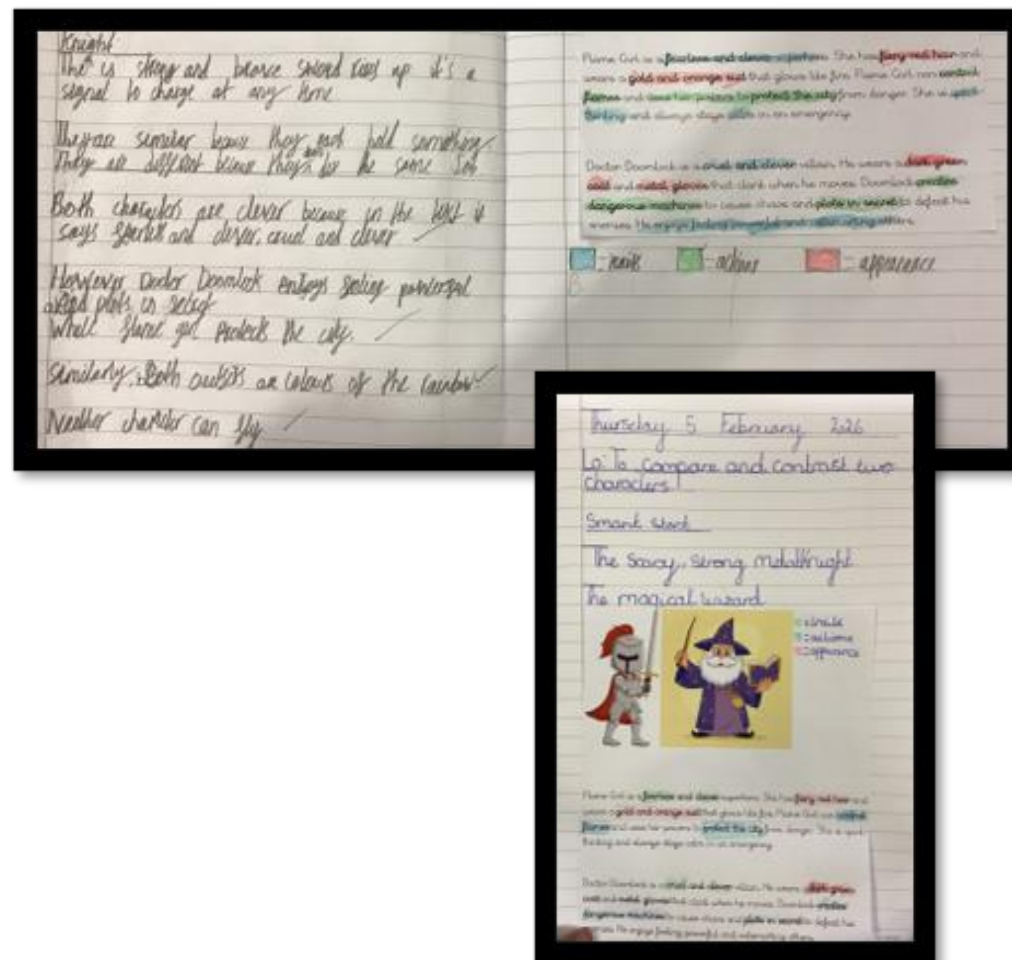 Knight
The is strong and brave sword rises up it's a
signal to charge at any time
They are similar because they both hold something.
They are different because they don't be the same Job
Both characters are clever because in the text it
says fearless and clever, cruel and clever
However Doctor Doomlock enjoys feeling powerful
and plots in secret
While flame girl protects the city.
Similarly, Both outfits are colours of the rainbow
Neather character can fly
Flame Girl is a fearless and clever superhero. She has fiery red hair and
wears a gold and orange suit that glows like fire. Flame Girl can control
flames and uses her powers to protect the city from danger. She is quick
thinking and always stays calm in an emergency.
Doctor Doomlock is a cruel and clever villain. He wears a dark green
coat and metal gloves that clank when he moves. Doomlock creates
dangerous machines to cause chaos and plots in secret to defeat his
enemies. He enjoys feeling powerful and outsmarting others.
= traits = actions = appearance
Thursday 5 February 2026
Lo: To compare and contrast two
characters!
Smart start
The strong
The magical wizard
Flame Girl is a fearless and clever superhero. She has fiery red hair and
wears a gold and orange suit that glows like fire. Flame Girl can control
flames and uses her powers to protect the city from danger. She is quick
thinking and always stays calm in an emergency.
Doctor Doomlock is a cruel and clever villain. He wears a dark green
coat and metal gloves that clank when he moves. Doomlock creates
dangerous machines to cause chaos and plots in secret to defeat his
enemies. He enjoys feeling powerful and outsmarting others.